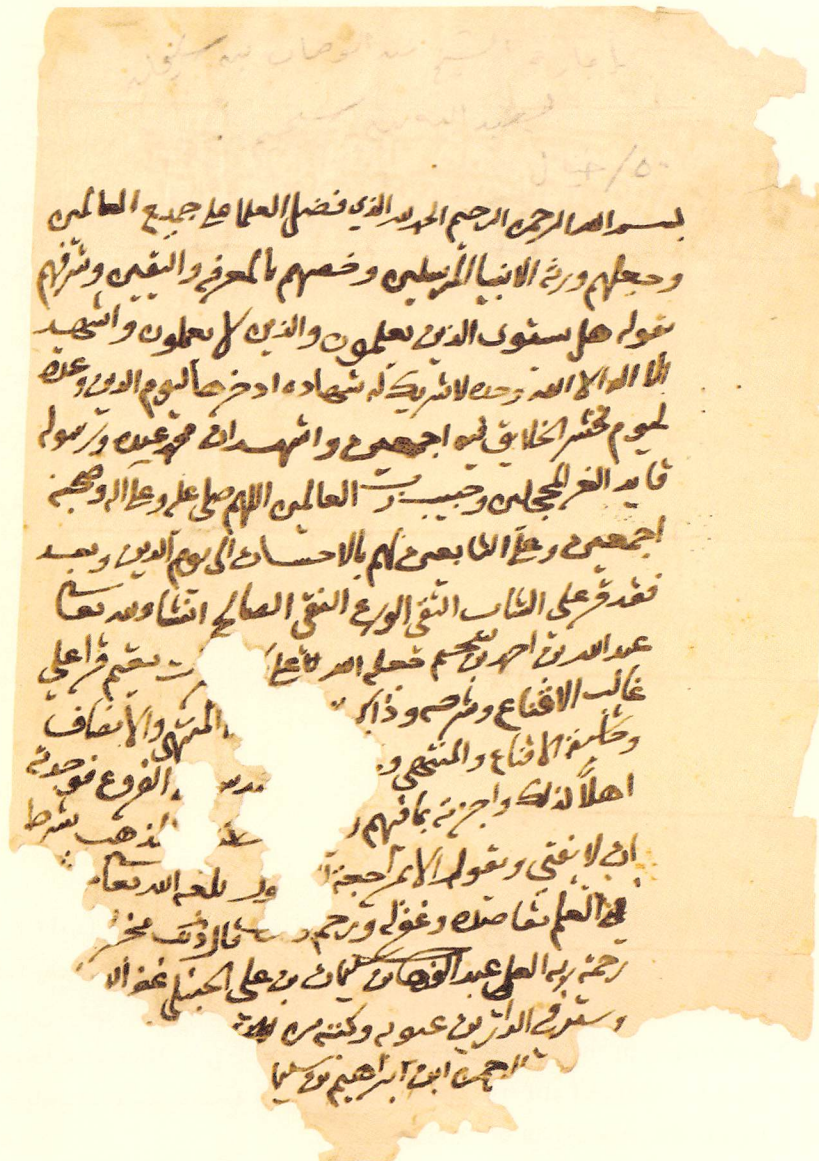 إجازة الشيخ عبد الوهاب بن سليمان
لعبد الله بن سحيم
بسم الله الرحمن الرحيم الحمد لله الذي فضل العلما على جميع العالمين
وجعلهم ورثة الانبيا المرسلين وخصهم بالمعرفه واليقين وشرفهم
بقوله هل يستوى الذين يعلمون والذين لا يعلمون واشهد
ان لا اله الا الله وحده لا شريك له شهادة ادخرها ليوم الدين وعدة
ليوم تحشر الخلايق فيه اجمعين واشهد ان محمد عبده ورسوله
قايد الغر المحجلين وحبيب رب العالمين اللهم صلى عليه وعلى اله وصحبه
اجمعين وعلى التابعين لهم بالاحسان الى يوم الدين وبعد
فقد قرء على الشاب التقي الورع النقي الصالح انشا الله تعالى
عبد الله بن احمد بن سحيم جعله الله يقيم قرا علي
غالب الاقناع وشرحه وذاكر المنتهى والانصاف
وحاشية الاقناع والمنتهى و الفروع فوجدته
اهلاً لذلك واجزته بما فهم المذهب بشرط
ان لا يفتي ويقول الا بمراجعة بلغه الله تعالى
في العلم مقاصده وغفر له ورحم قال ذلك
رحمة ربه العلي عبد الوهاب بن سليمان بن علي الحنبلي غفر الله
وستر في الدارين عيوبه وكتبه من
الرحمن ابن ابراهيم بن سليما